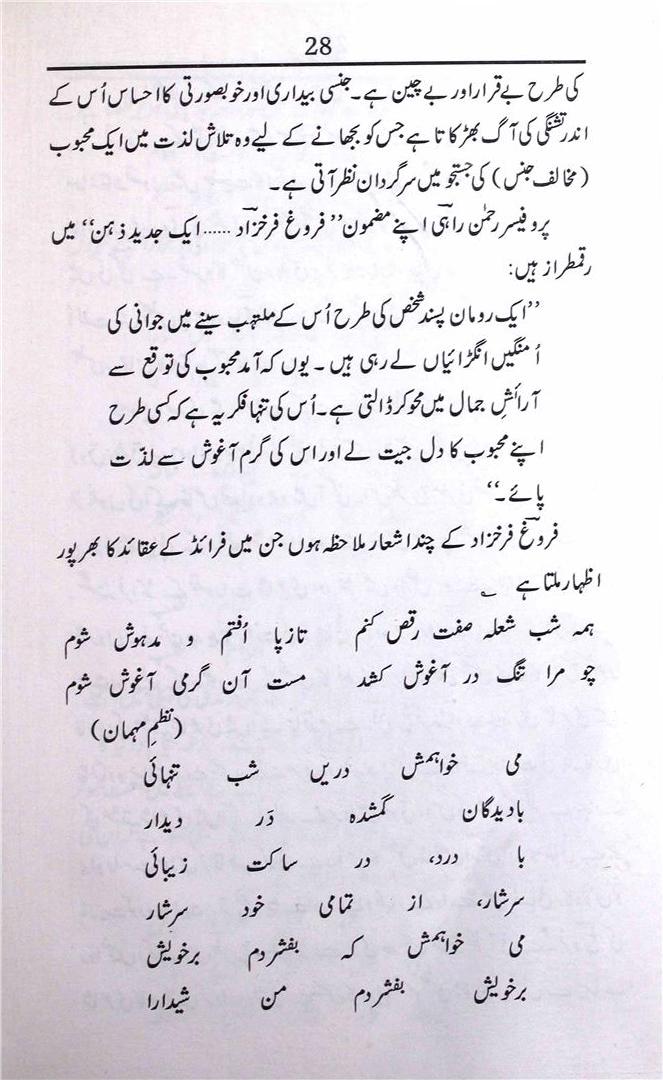 28
کی طرح بے قرار اور بے چین ہے۔ جنسی بیداری اور خوبصورتی کا احساس اُس کے
اندر تشنگی کی آگ بھڑکاتا ہے جس کو بجھانے کے لیے وہ تلاش لذت میں ایک محبوب
(مخالف جنس) کی جستجو میں سرگردان نظر آتی ہے۔
پروفیسر رحمٰن راہی اپنے مضمون ”فروغ فرخزاد ...... ایک جدید ذہن“ میں
رقمطراز ہیں:
”ایک رومان پسند شخص کی طرح اُس کے ملتہب سینے میں جوانی کی
اُمنگیں انگڑائیاں لے رہی ہیں۔ یوں کہ آمد محبوب کی توقع سے
آرائشِ جمال میں محو کر ڈالتی ہے۔ اُس کی تنہا فکر یہ ہے کہ کسی طرح
اپنے محبوب کا دل جیت لے اور اس کی گرم آغوش سے لذّت
پائے۔“
فروغ فرخزاد کے چند اشعار ملاحظہ ہوں جن میں فرائڈ کے عقائد کا بھرپور
اظہار ملتا ہے ؎
ہمہ شب شعلہ صفت رقص کنم تا ز پا اُفتم و مدہوش شوم
چو مرا تنگ در آغوش کشد مست آن گرمی آغوش شوم
(نظمِ مہمان)
می خواہمش دریں شب تنہائی
بادیدگان گمشدہ دَر دیدار
با درد، در ساکت زیبائی
سرشار، از تمامی خود سرشار
می خواہمش کہ بفشردم برخویش
برخویش بفشردم من شیدارا